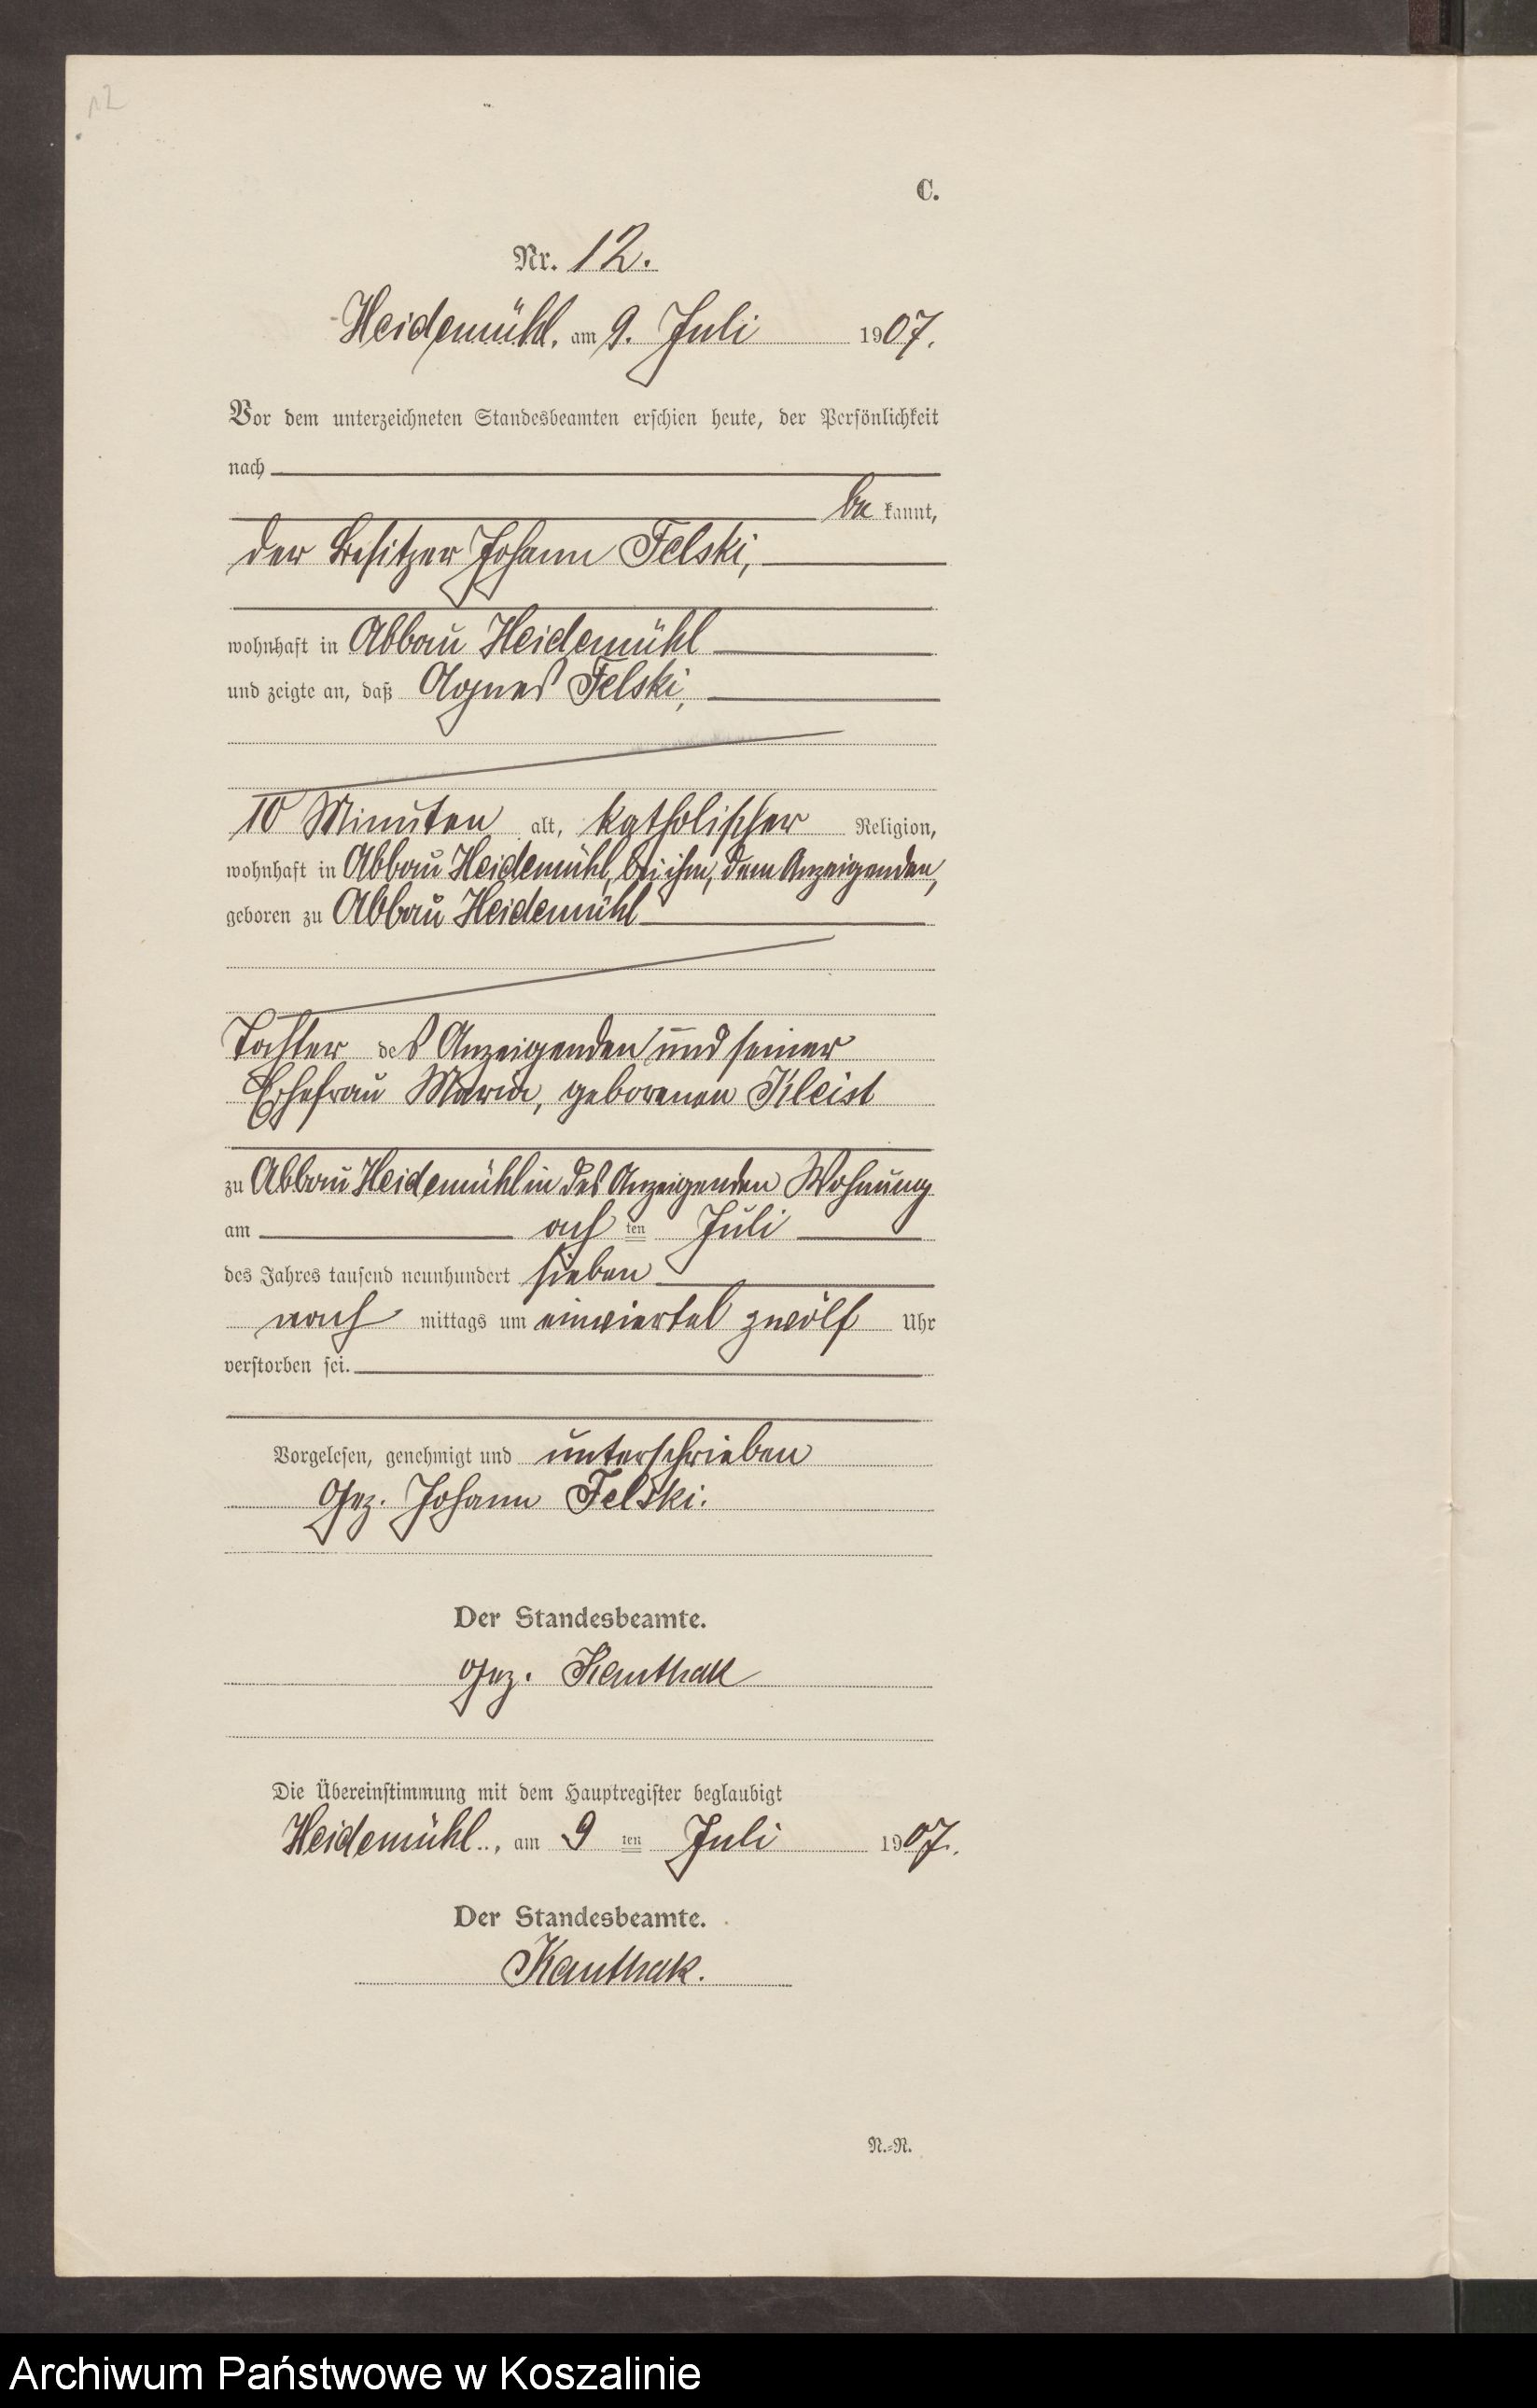 12
C.
Nr. 12.
Heidemühl, am 9. Juli 1907.
Vor dem unterzeichneten Standesbeamten erschien heute, der Persönlichkeit
nach
be kannt,
der Besitzer Johann Felski,
wohnhaft in Abbau Heidemühl
und zeigte an, daß Agnes Felski,
10 Minuten alt, katholischer Religion,
wohnhaft in Abbau Heidemühl, bei ihm, dem Anzeigenden,
geboren zu Abbau Heidemühl
Tochter des Anzeigenden und seiner
Ehefrau Maria, geborenen Kleist
zu Abbau Heidemühl in des Anzeigenden Wohnung
am ach ten Juli
des Jahres tausend neunhundert sieben
nach mittags um einviertel zwölf Uhr
verstorben sei.
Vorgelesen, genehmigt und unterschrieben
Gez. Johann Felski.
Der Standesbeamte.
Gez. Kanthak
Die Übereinstimmung mit dem Hauptregister beglaubigt
Heidemühl, am 9 ten Juli 1907.
Der Standesbeamte.
Kanthak.
N.-N.
Archiwum Państwowe w Koszalinie